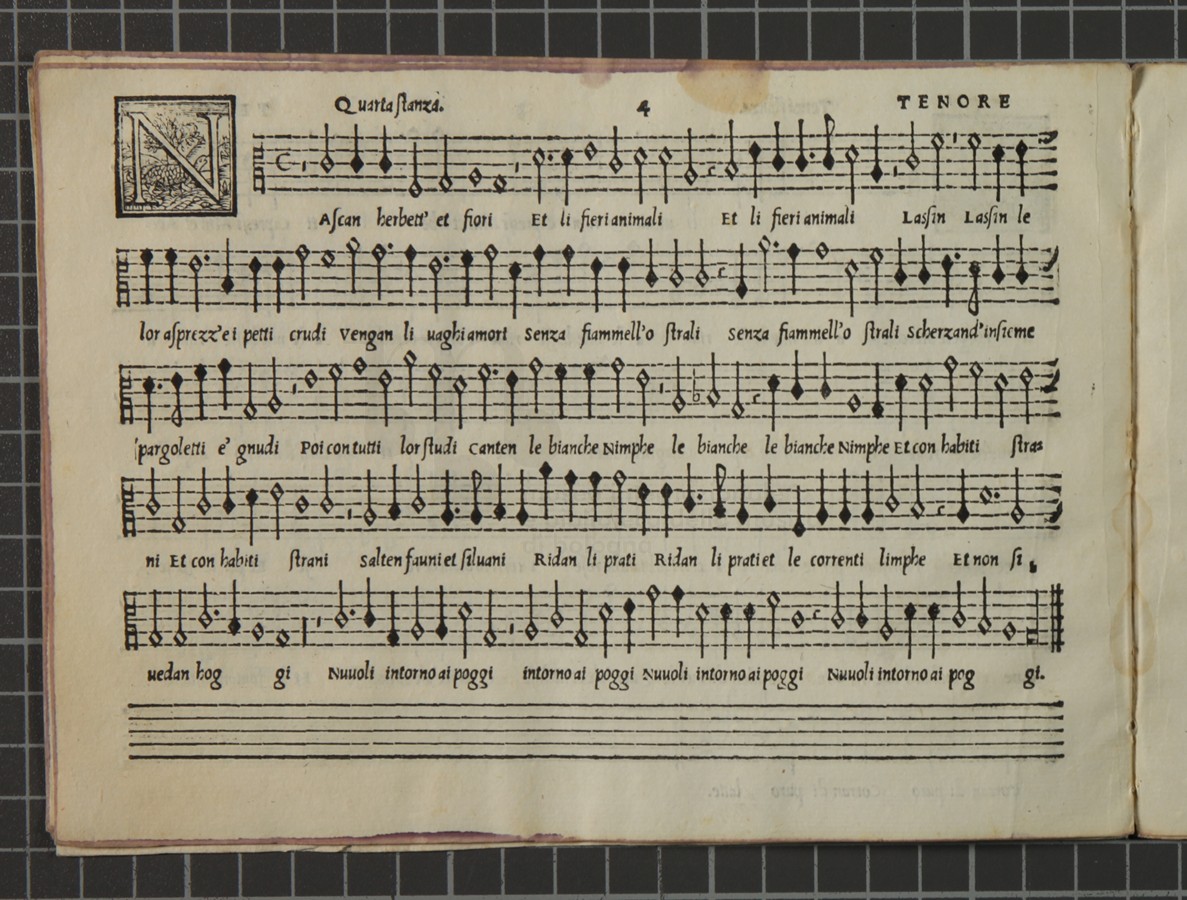 Quarta ſtanza. 4 TENORE
NAſcan herbett' et fiori Et li fieri animali Et li fieri animali Laſſin Laſſin le
lor aſprezz'e i petti crudi Vengan li uaghi amori Senza fiammell'o ſtrali Senza fiammell'o ſtrali Scherzand'inſieme
pargoletti e' gnudi Poi con tutti lor ſtudi Canten le bianche Nimphe le bianche le bianche Nimphe Et con habiti ſtra-
ni Et con habiti ſtrani Salten fauni et ſiluani Ridan li prati Ridan li prati et le correnti limphe Et non ſi
uedan hog gi Nuuoli intorno ai poggi intorno ai poggi Nuuoli intorno ai poggi Nuuoli intorno ai pog gi.